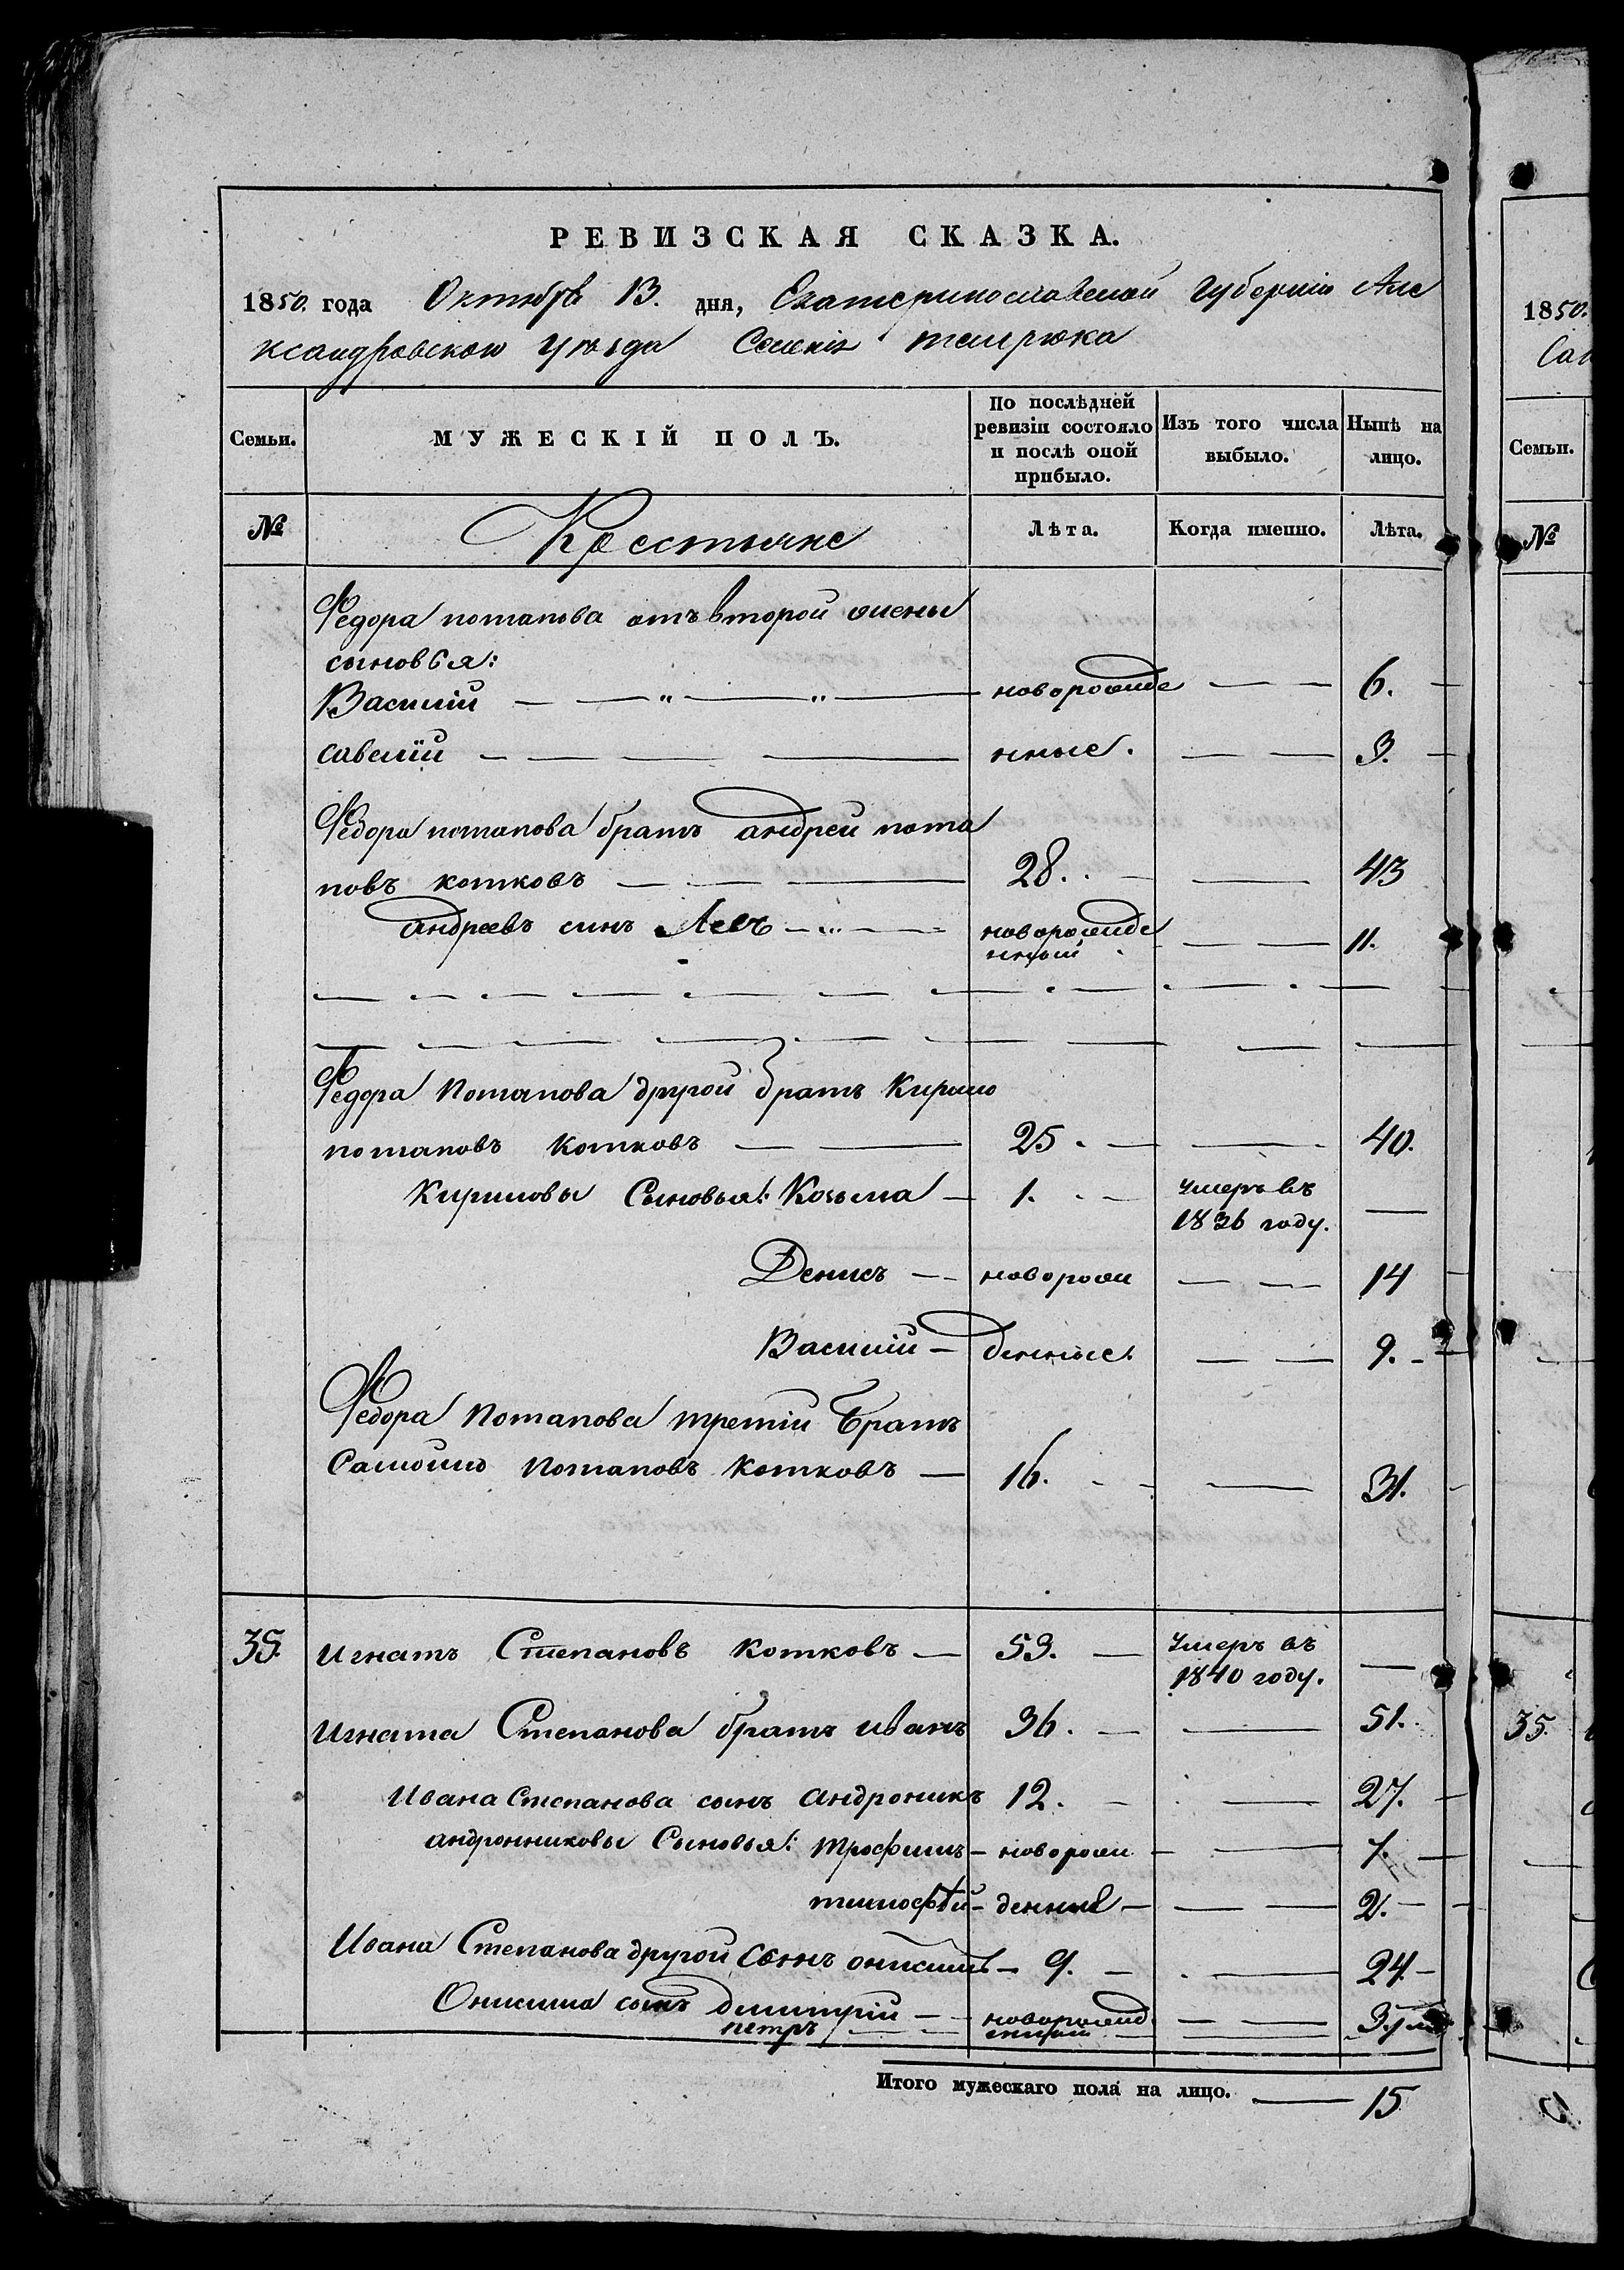 РЕВИЗСКАЯ СКАЗКА.
1850. года Октября 13. дня, Екатеринославской Губерніи Але
ксандровского Уѣзда Селенія темрюка
Семьи. МУЖЕСКІЙ ПОЛЪ. По послѣдней ревизіи состояло и послѣ оной прибыло. Изъ того числа выбыло. Нынѣ на лицо.
№ Крестьяне Лѣта. Когда именно. Лѣта.
Федора потапова отъ второй жены
сыновья:
Василій — — " — " — новорожде — — 6. —
савелій — — — — нные. — — 3. —
Федора потапова братъ андрей пота
повъ котковъ — — — 28. — — 43
андреевъ синъ Левъ — " — новорожде
нный — — 11.
Федора Потапова другой братъ Кирило
потаповъ Котковъ — — 25. — — 40.
Кириловы Сыновья: Козьма — 1. — умеръ въ
1836 году. —
Денисъ — новорож — — 14
Василій — денные. — — 9. —
Федора Потапова третій Братъ
Самойло Потаповъ Котковъ — 16. — — 31.
35. Игнатъ Степановъ Котковъ — 53. — Умеръ въ
1840 году. —
Игната Степанова братъ иванъ 36. — — 51.
Ивана Степанова сынъ андроникъ 12. — — 27. —
андронниковы Сыновья: трофимъ — новорож — — 7. —
тимофѣй — денные — — — 2. —
Ивана Степанова другой Сынъ онисимъ — 9. — — 24 —
Онисима сынъ димитрій — новорожд — — 3
петръ — — енный
Итого мужескаго пола на лицо. — 15
1850.
Семьи.
№
35.